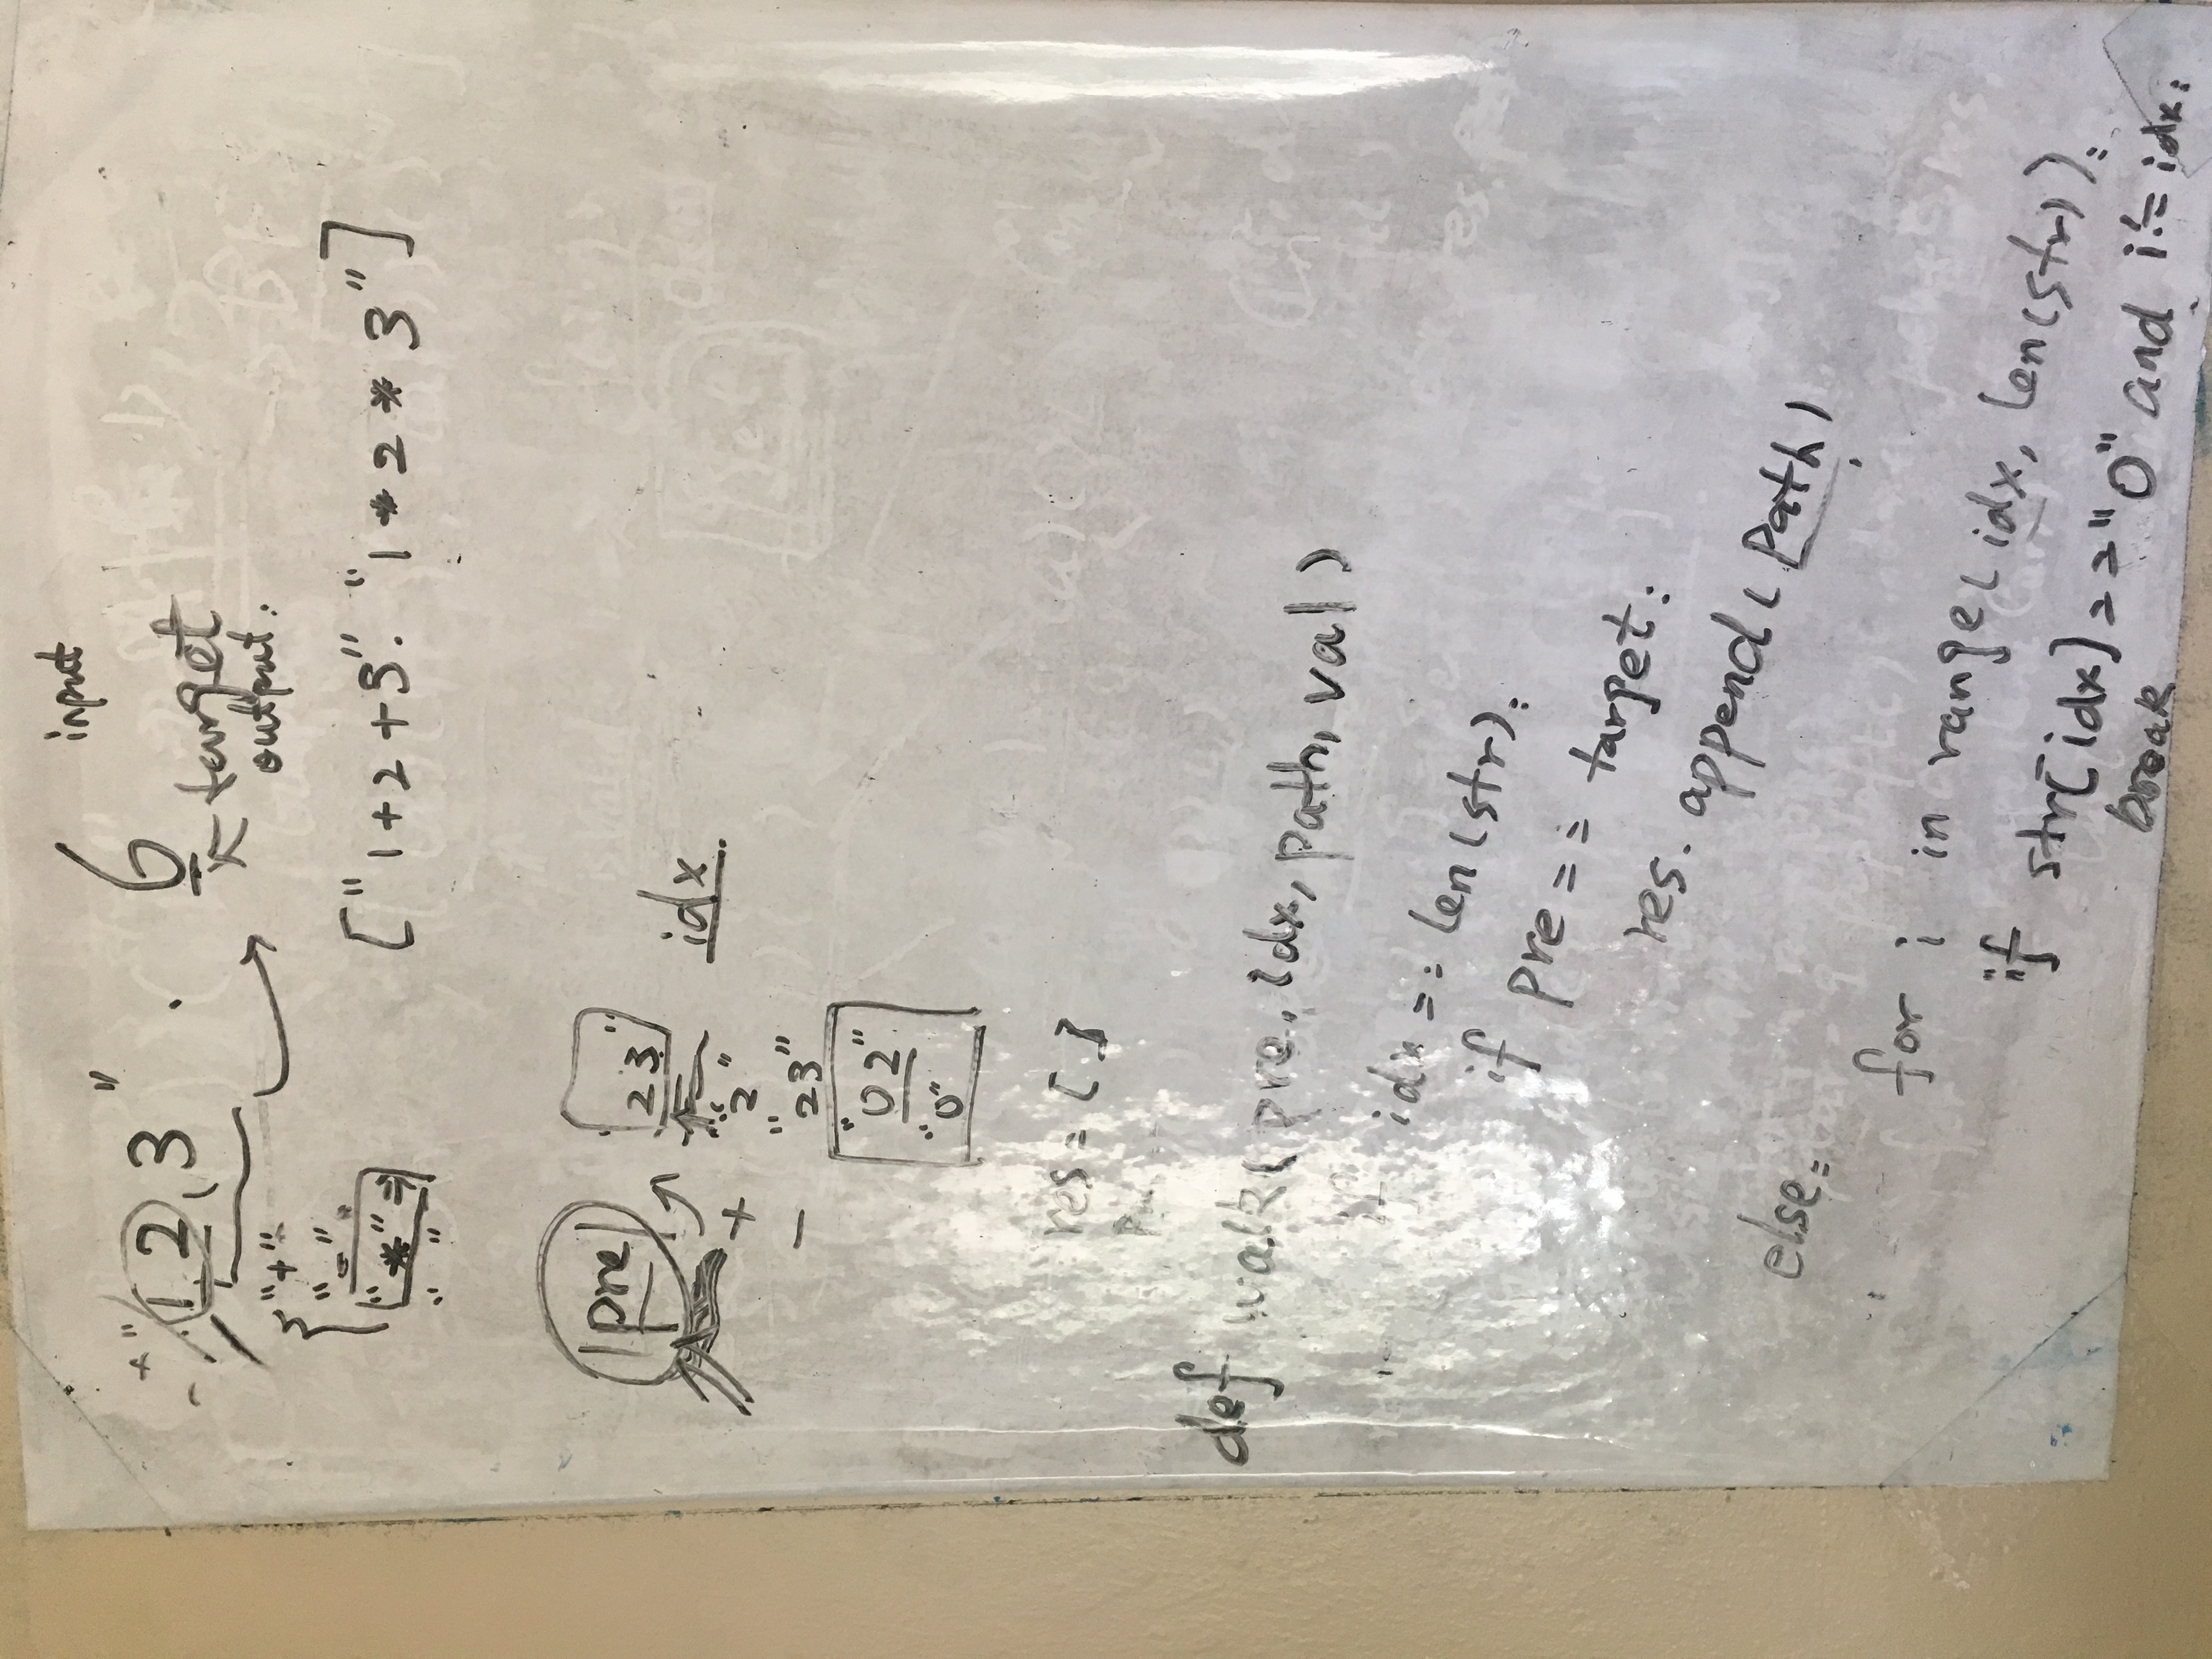 input
+ " 1, 2, 3 " . 6
-
target
output:
"+"
"-"
"*" ⇒
" "
["1+2+3". "1*2*3"]
pre
"23"
idx
+ "2"
- "23"
"02"
"0"
res = []
def walk(pre, idx, path, val)
if idx == len(str):
if pre == target:
res. append(path)
else:
for i in range(idx, len(str)):
if str[idx] == "0" and i != idx:
break